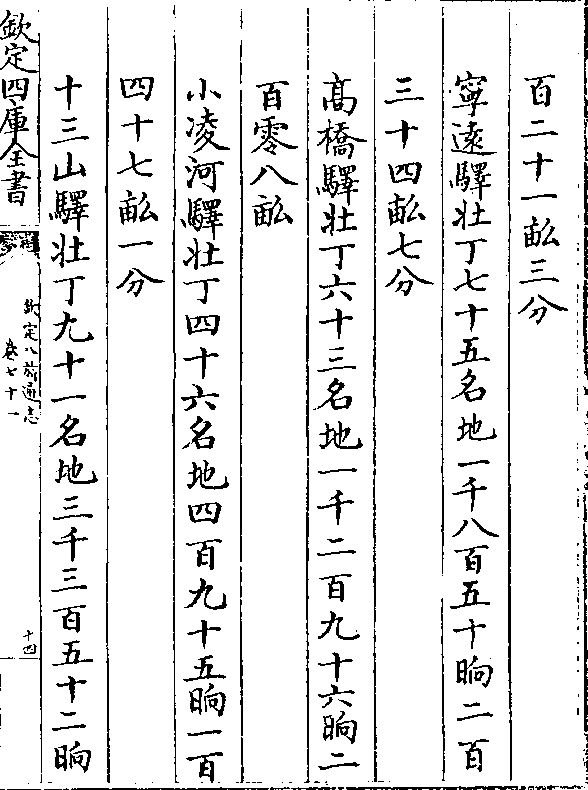 百二十一畝三分
寧遠驛壯丁七十五名地一千八百五十晌二百
三十四畝七分
髙橋驛壯丁六十三名地一千二百九十六晌二
百零八畝
小凌河驛壯丁四十六名地四百九十五晌一百
四十七畝一分
十三山驛壯丁九十一名地三千三百五十二晌
欽定四庫全書
欽定八旗通志
卷七十一
十四